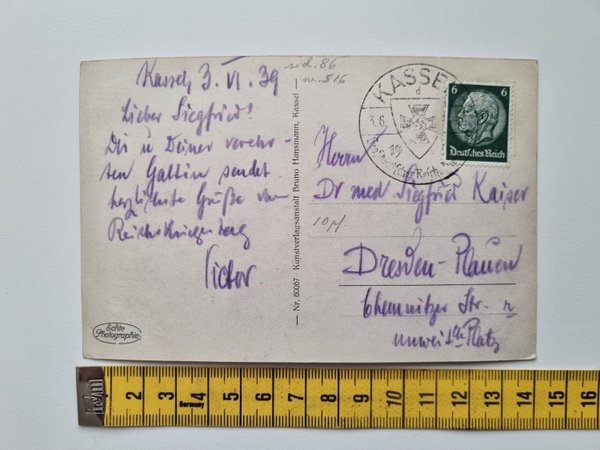 Kassel, 3. VI. 39
Lieber Siegfried!
Dir u Deiner verehr-
ten Gattin sendet
herzlichste Grüße vom
Reichskriegertag
Victor.
Echte
Photographie
— Nr. 60067 Kunstverlagsanstalt Bruno Hansmann, Kassel —
KASSEL
d
3.6.
19
6 6
Deutsches Reich
Herrn
Dr med Siegfried Kaiser
10 pf
Dresden-Plauen
Chemnitzer Str.
Platz
2 3 4 5 6 7 8 9 10 11 12 13 14 15 16
Germany